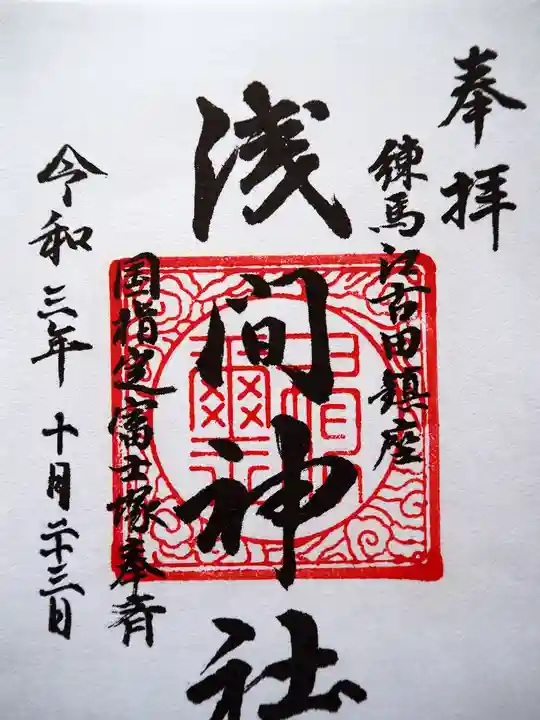 奉拝
練馬江古田鎮座
浅間神社
国指定富士塚奉斉
令和三年 十月二十三日